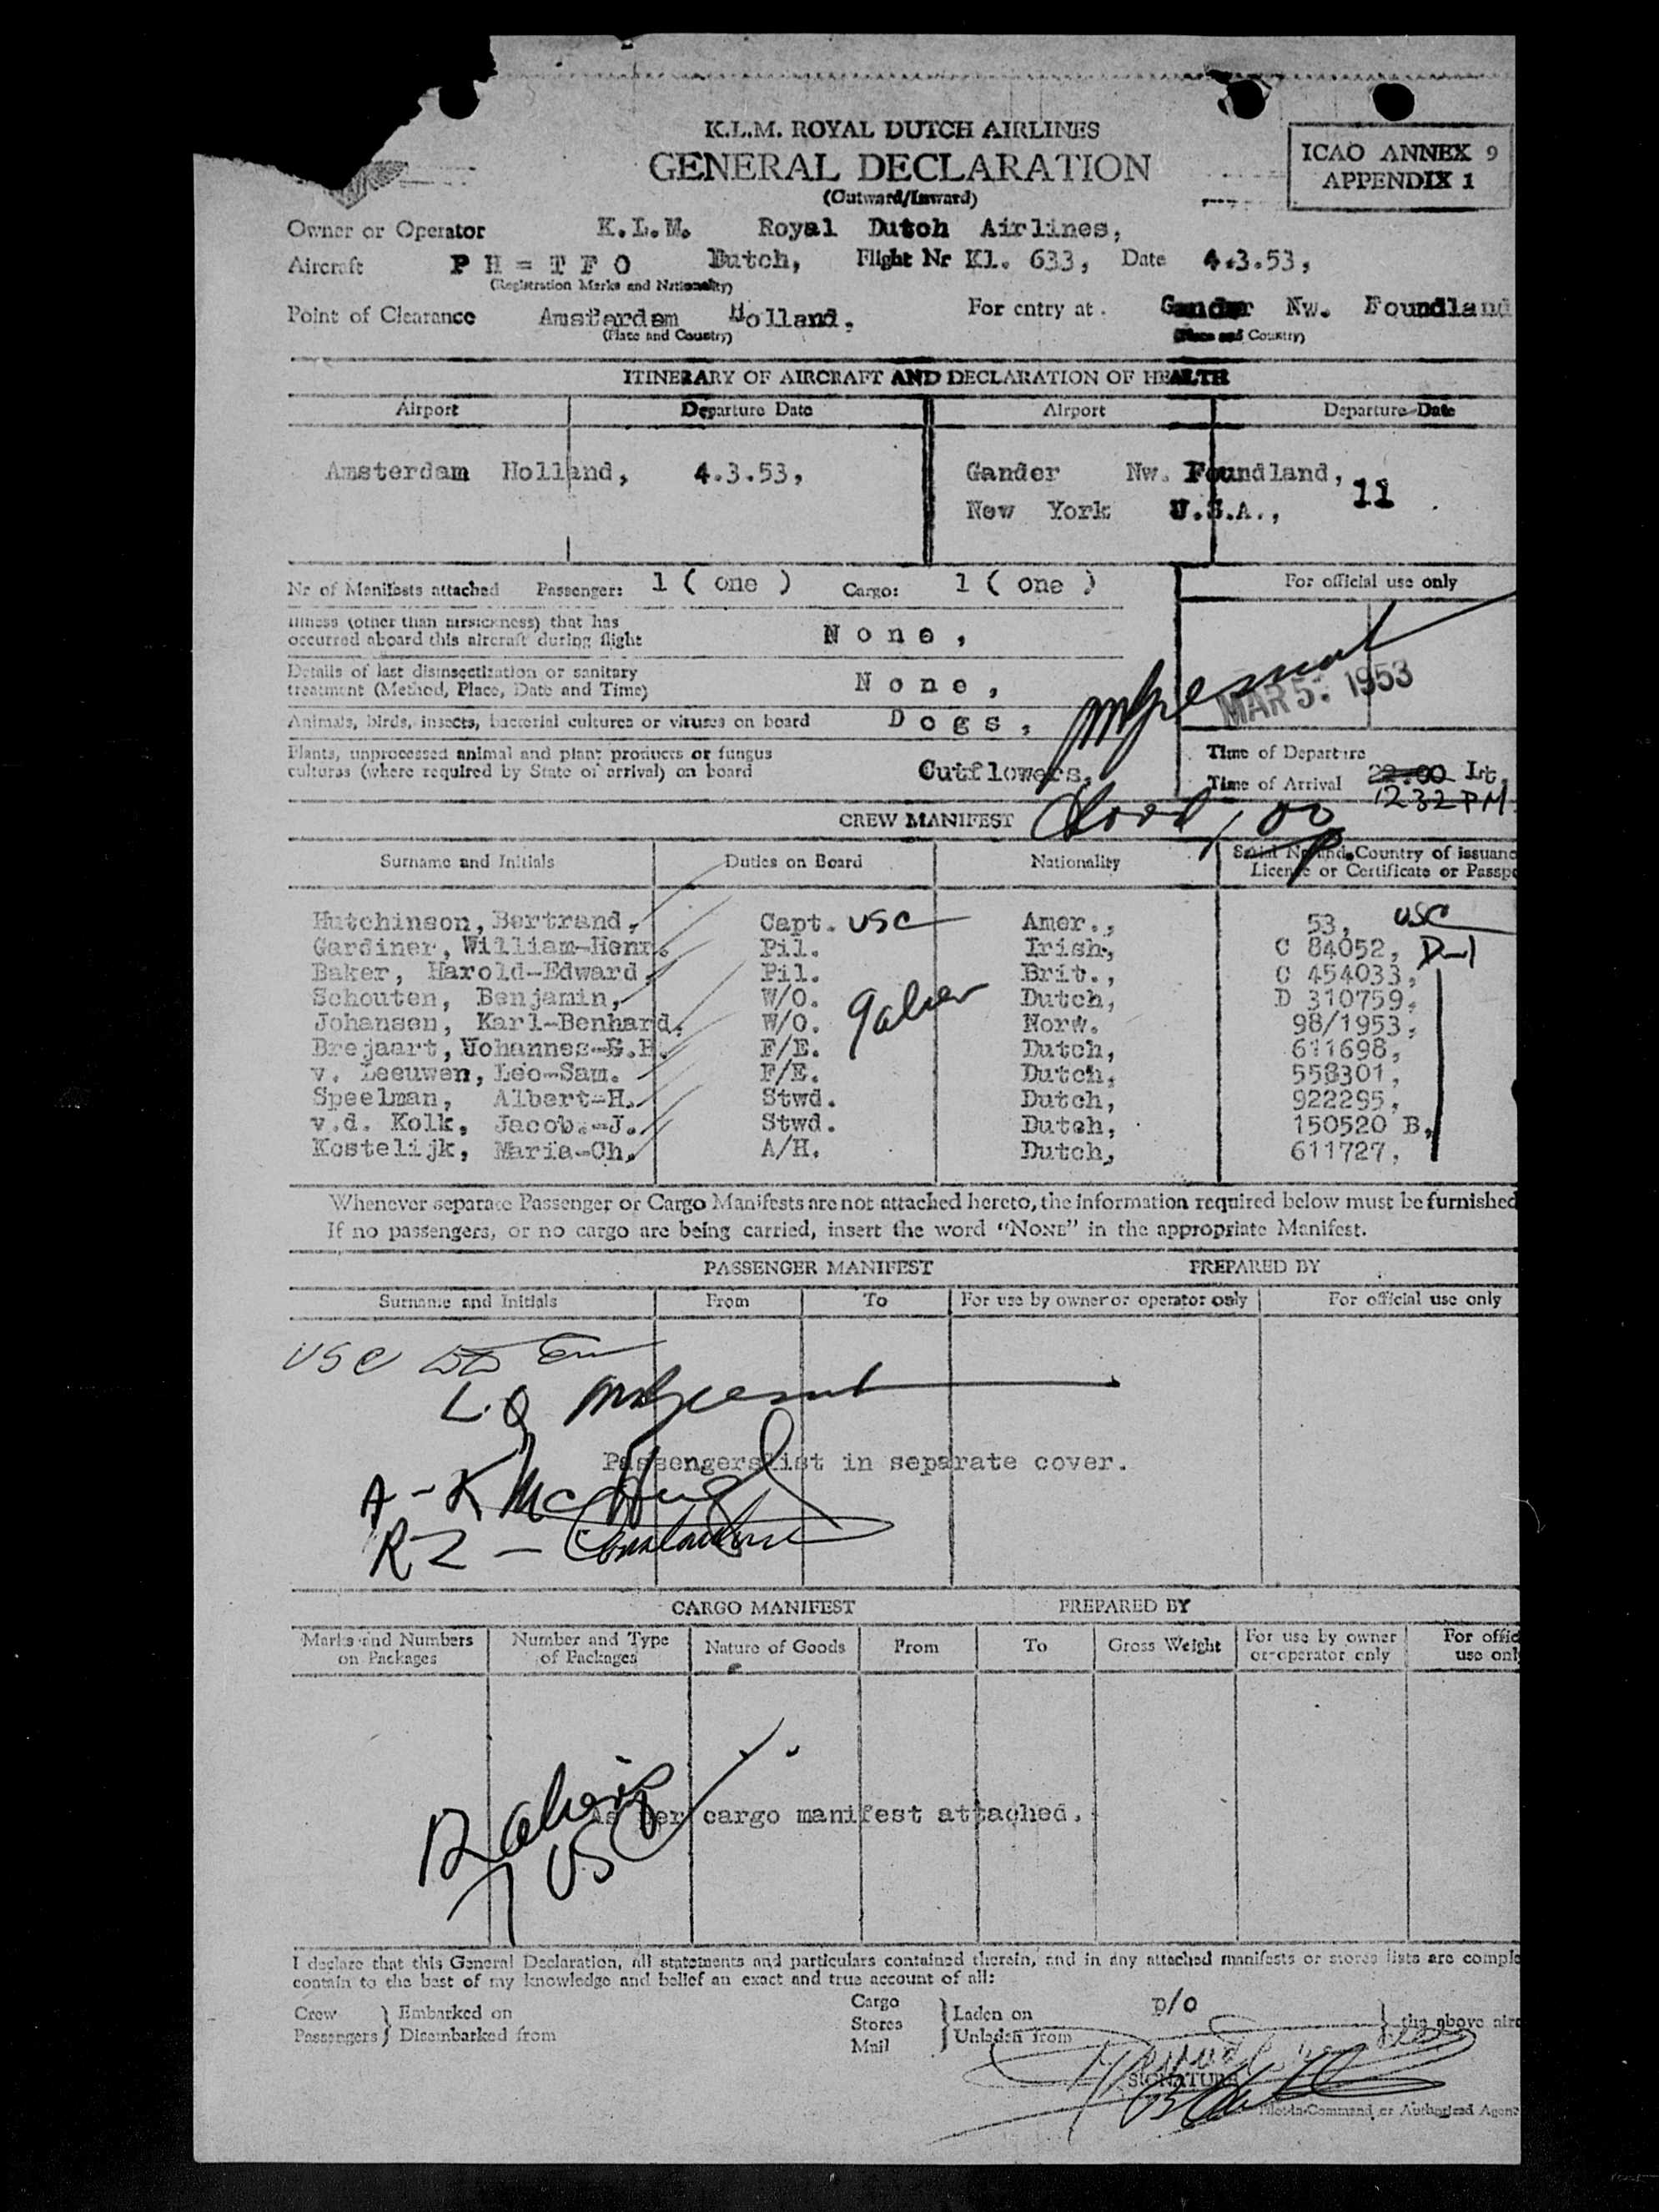 K.L.M. ROYAL DUTCH AIRLINES
GENERAL DECLARATION
(Outward/Inward)
ICAO ANNEX 9
APPENDIX 1
Owner or Operator K.L.M. Royal Dutch Airlines,
Aircraft P H = T F O Dutch, Flight Nr Kl. 633, Date 4.3.53,
(Registration Marks and Nationality)
Point of Clearance Amsterdam Holland, For entry at . Gander Nw. Foundland
(Place and Country) (Place and Country)
ITINERARY OF AIRCRAFT AND DECLARATION OF HEALTH
Airport Departure Date Airport Departure Date
Amsterdam Holland, 4.3.53, Gander Nw. Foundland,
New York U.S.A., 11
Nr of Manifests attached Passenger: 1 ( one ) Cargo: 1 ( one ) For official use only
Illness (other than airsickness) that has
occurred aboard this aircraft during flight None,
Details of last disinsectization or sanitary
treatment (Method, Place, Date and Time) None,
MAR 5. 1953
Animals, birds, insects, bacterial cultures or viruses on board Dogs,
Plants, unprocessed animal and plant products or fungus
cultures (where required by State of arrival) on board Cutflowers,
Time of Departure
Time of Arrival 22.00 Lt.
12 32 PM
CREW MANIFEST
Surname and Initials Duties on Board Nationality Serial Nr and Country of issuanc
Licence or Certificate or Passpo
Hutchinson, Bertrand, Capt. USC Amer., 53, USC
Gardiner, William-Henr. Pil. Irish, C 84052, D-1
Baker, Harold-Edward, Pil. Brit., C 454033,
Schouten, Benjamin, W/O. Dutch, D 310759,
Johansen, Karl-Benhard, W/O. Norw. 98/1953,
Brejaart, Johannes-G.H. F/E. Dutch, 611698,
v. Leeuwen, Leo-Sam. F/E. Dutch, 558301,
Speelman, Albert-H. Stwd. Dutch, 922295,
v.d. Kolk, Jacob.-J. Stwd. Dutch, 150520 B,
Kostelijk, Maria-Ch, A/H. Dutch, 611727,
Whenever separate Passenger or Cargo Manifests are not attached hereto, the information required below must be furnished
If no passengers, or no cargo are being carried, insert the word “NONE” in the appropriate Manifest.
PASSENGER MANIFEST PREPARED BY
Surname and Initials From To For use by owner or operator only For official use only
USC
L.Q
Passengerslist in separate cover.
A - K McHugh
R-Z -
CARGO MANIFEST PREPARED BY
Marks and Numbers
on Packages
Number and Type
of Packages
Nature of Goods From To Gross Weight
For use by owner
or operator only
For offic
use onl
As per cargo manifest attached.
USC
I declare that this General Declaration, all statements and particulars contained therein, and in any attached manifests or stores lists are comple
contain to the best of my knowledge and belief an exact and true account of all:
Crew
Passengers
Embarked on
Disembarked from
Cargo
Stores
Mail
Laden on
Unladen from
p/o
the above airc
SIGNATURE
Pilot-in-Command or Authorized Agent